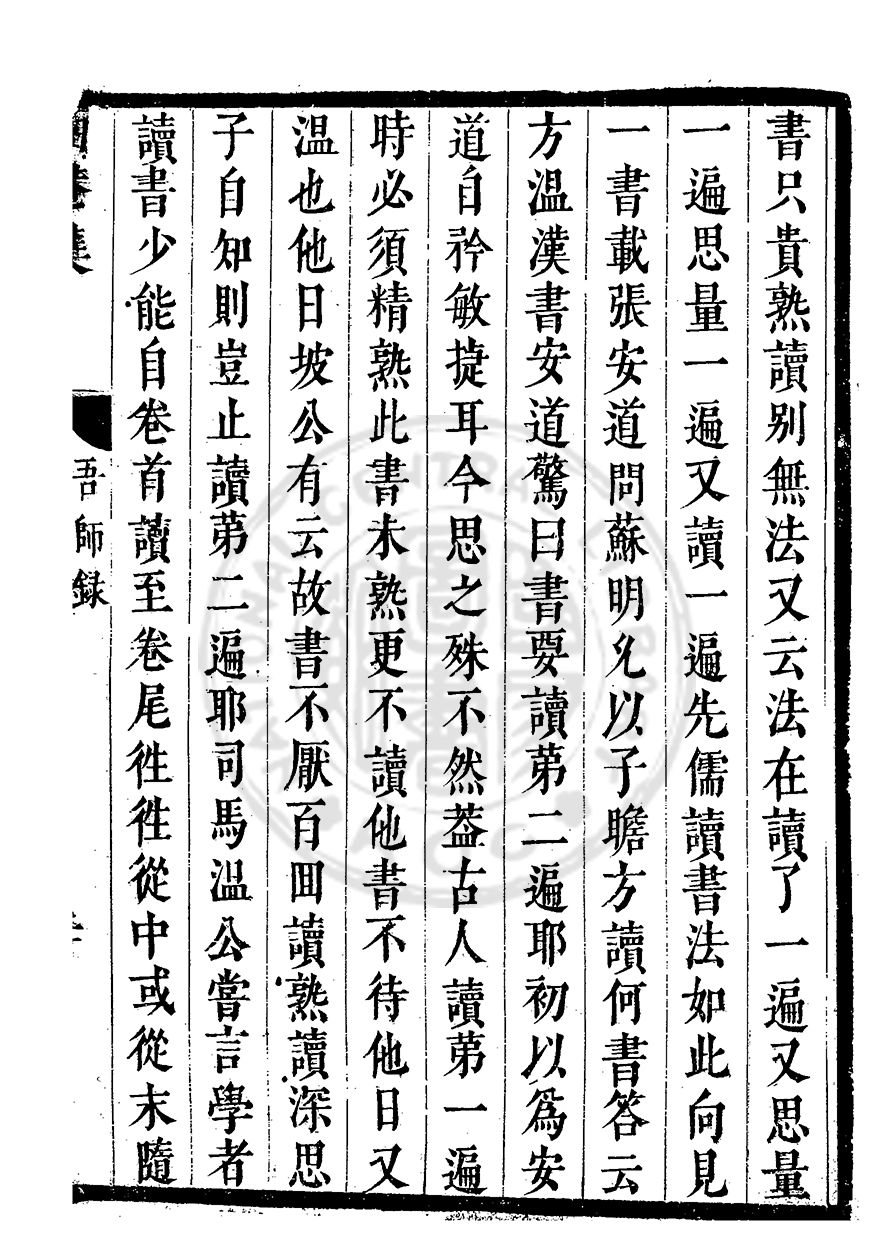 書只貴熟讀別無法又云法在讀了一遍又思量
一遍思量一遍又讀一遍先儒讀書法如此向見
一書載張安道問蘇明允以子瞻方讀何書答云
方溫漢書安道驚曰書要讀第二遍耶初以爲安
道自矜敏捷耳今思之殊不然葢古人讀第一遍
時必須精熟此書未熟更不讀他書不待他日又
温也他日坡公有云故書不厭百回讀熟讀深思
子自知則豈止讀第二遍耶司馬溫公嘗言學者
讀書少能自卷首讀至卷尾徃徃從中或從末隨
吾師録